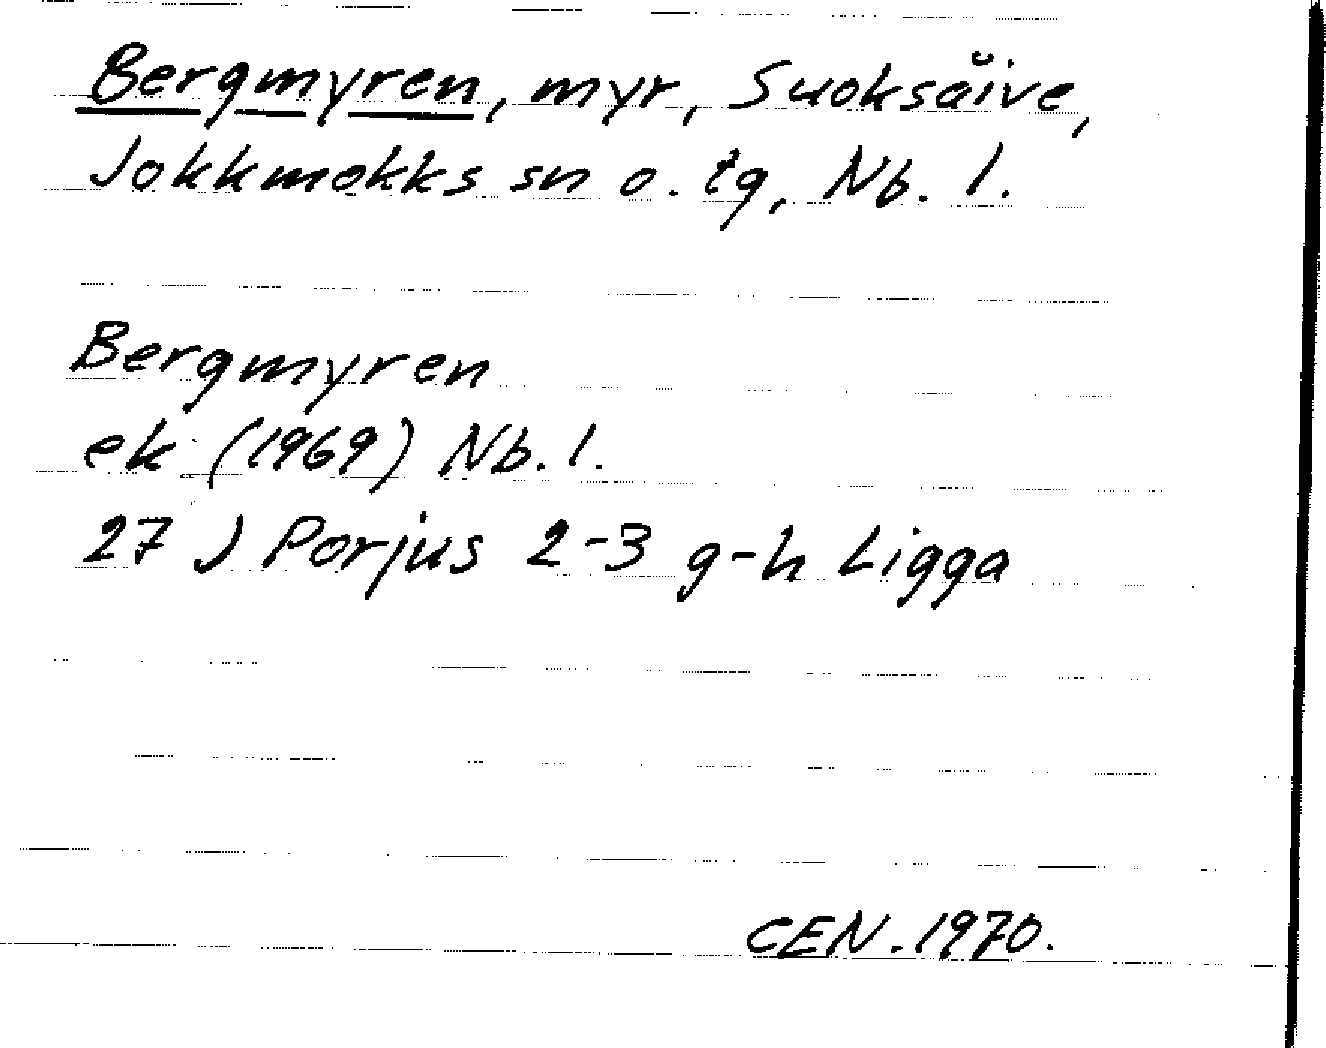 Bergmyren, myr, Suoksăive,
Jokkmokks sn o. tg, Nb. l.
Bergmyren
ek (1969) Nb. l.
27 J Porjus 2-3 g-h Ligga
CEN. 1970.